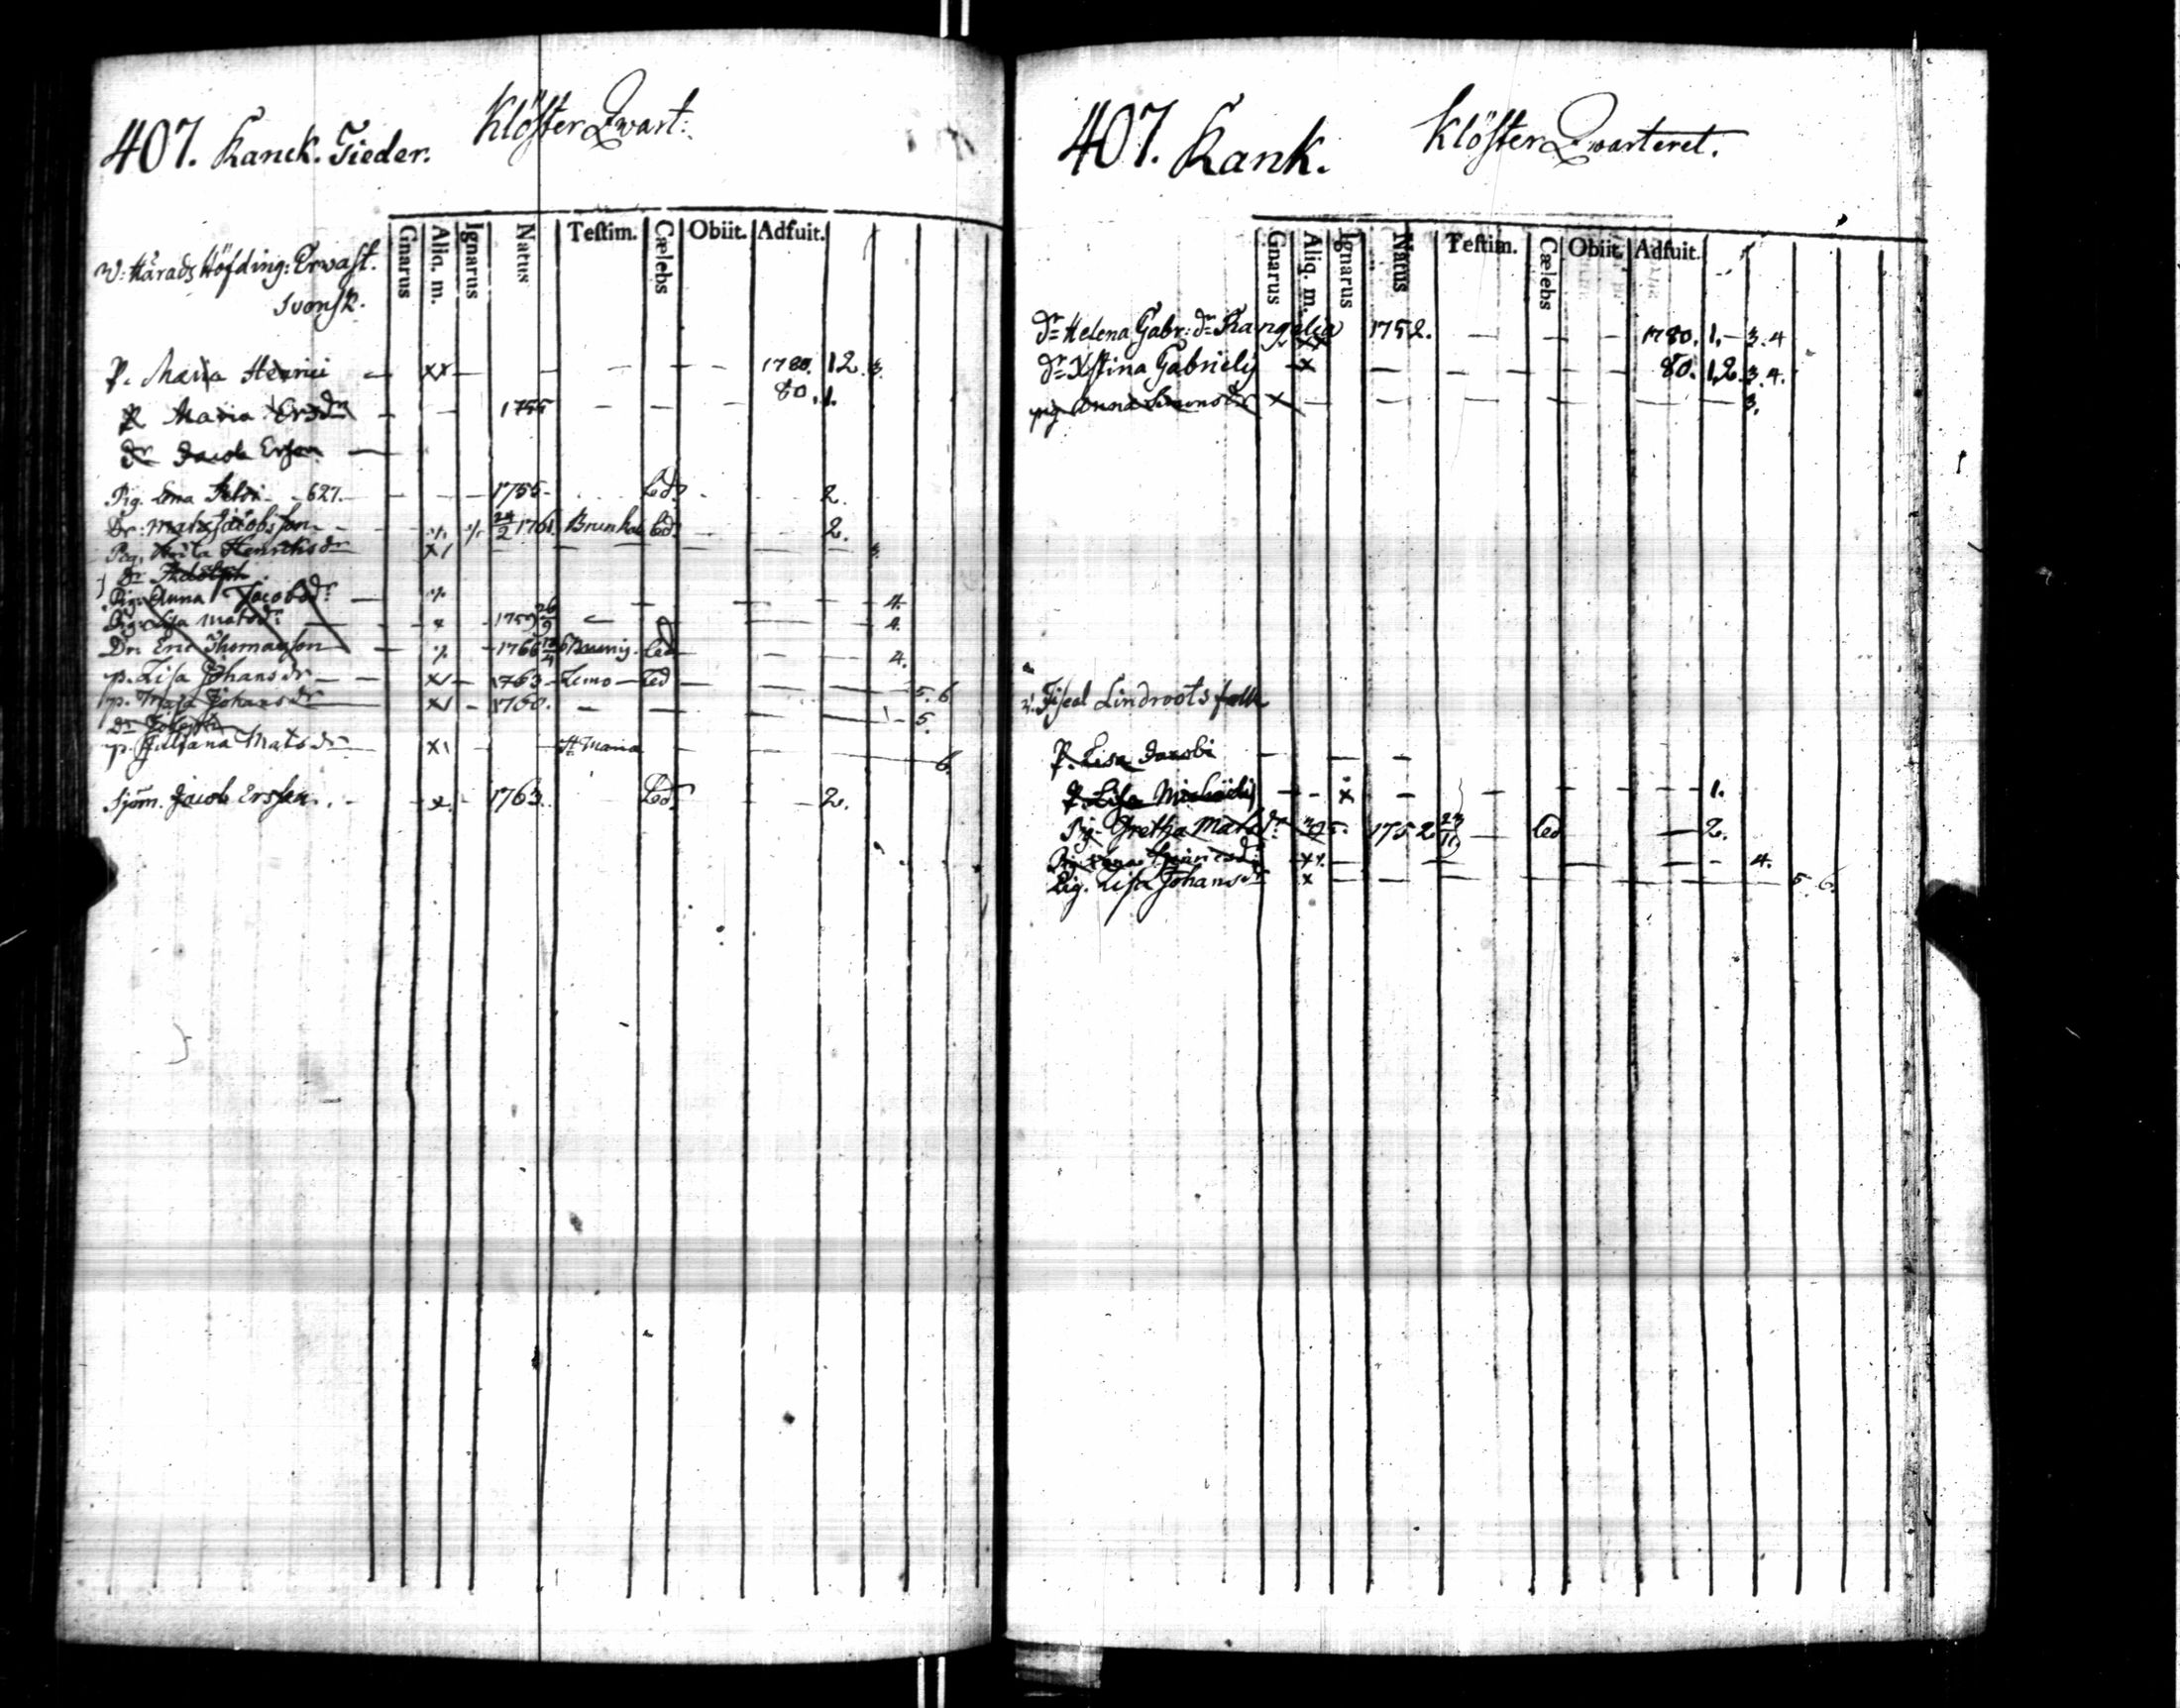 407. Kanck. Tieder. Klöster Qwart:
Gnarus Aliq. m. Ignarus Natus Testim. Cælebs Obiit. Adfuit.
v: Härads Höfding: Erwast.
svensk.
P. Maria Henrici — xx — — — — — 1780. 1 2. 3.
P Maria Ersdr — — 1755 — — — 80. 1.
Dr Jacob Ersson —
Pig. Lena - - 627. — — — 1755 - Led. - - 2.
Dr: Mats Jacobsson - 24/2 1761. Led. — — 2.
Pig. Henrichsdr x/ — — — — — — 3.
Dr Adolph
Pig: Anna Jacobsdr — — — — 4.
Pig: Lisa Matsdr - x - 1759 26/9 — 4.
Dr: Eric Thomasson — - 1766 Led — — 4.
p. Lisa Johansdr — — x/ — 1763 - Lemo — Led — — — 5. 6
p. Maja Johansdr x/ - 1760. - — — — 5.
Dr
p. Juliana Matsdr x/ - St Maria — — 6.
Sjöm. Jacob Ersson. - - x. - 1763. Led. - — 2.
407. Kank. Klöster Qwarteret.
Gnarus Aliq. m. Ignarus Natus Testim. Cælebs Obiit. Adfuit.
Dr Helena Gabr: dr xx 1752. — — — 1780. 1. — 3. 4
Dr Xstina Gabrielis — x — — — — 80. 1, 2. 3. 4.
pig Anna Simonsdr x — — — — — 3.
v. Fiscal Lindroots folk
P. Lisa Jacobi — — —
P. Lisa Michaelis — - x — — — - 1.
Pig. Gretha Matsdr 1752 23/11 — Led — 2.
Pig. xx. — — — — — 4.
Pig. Lisa Johansdr x — — — — — 5. 6.